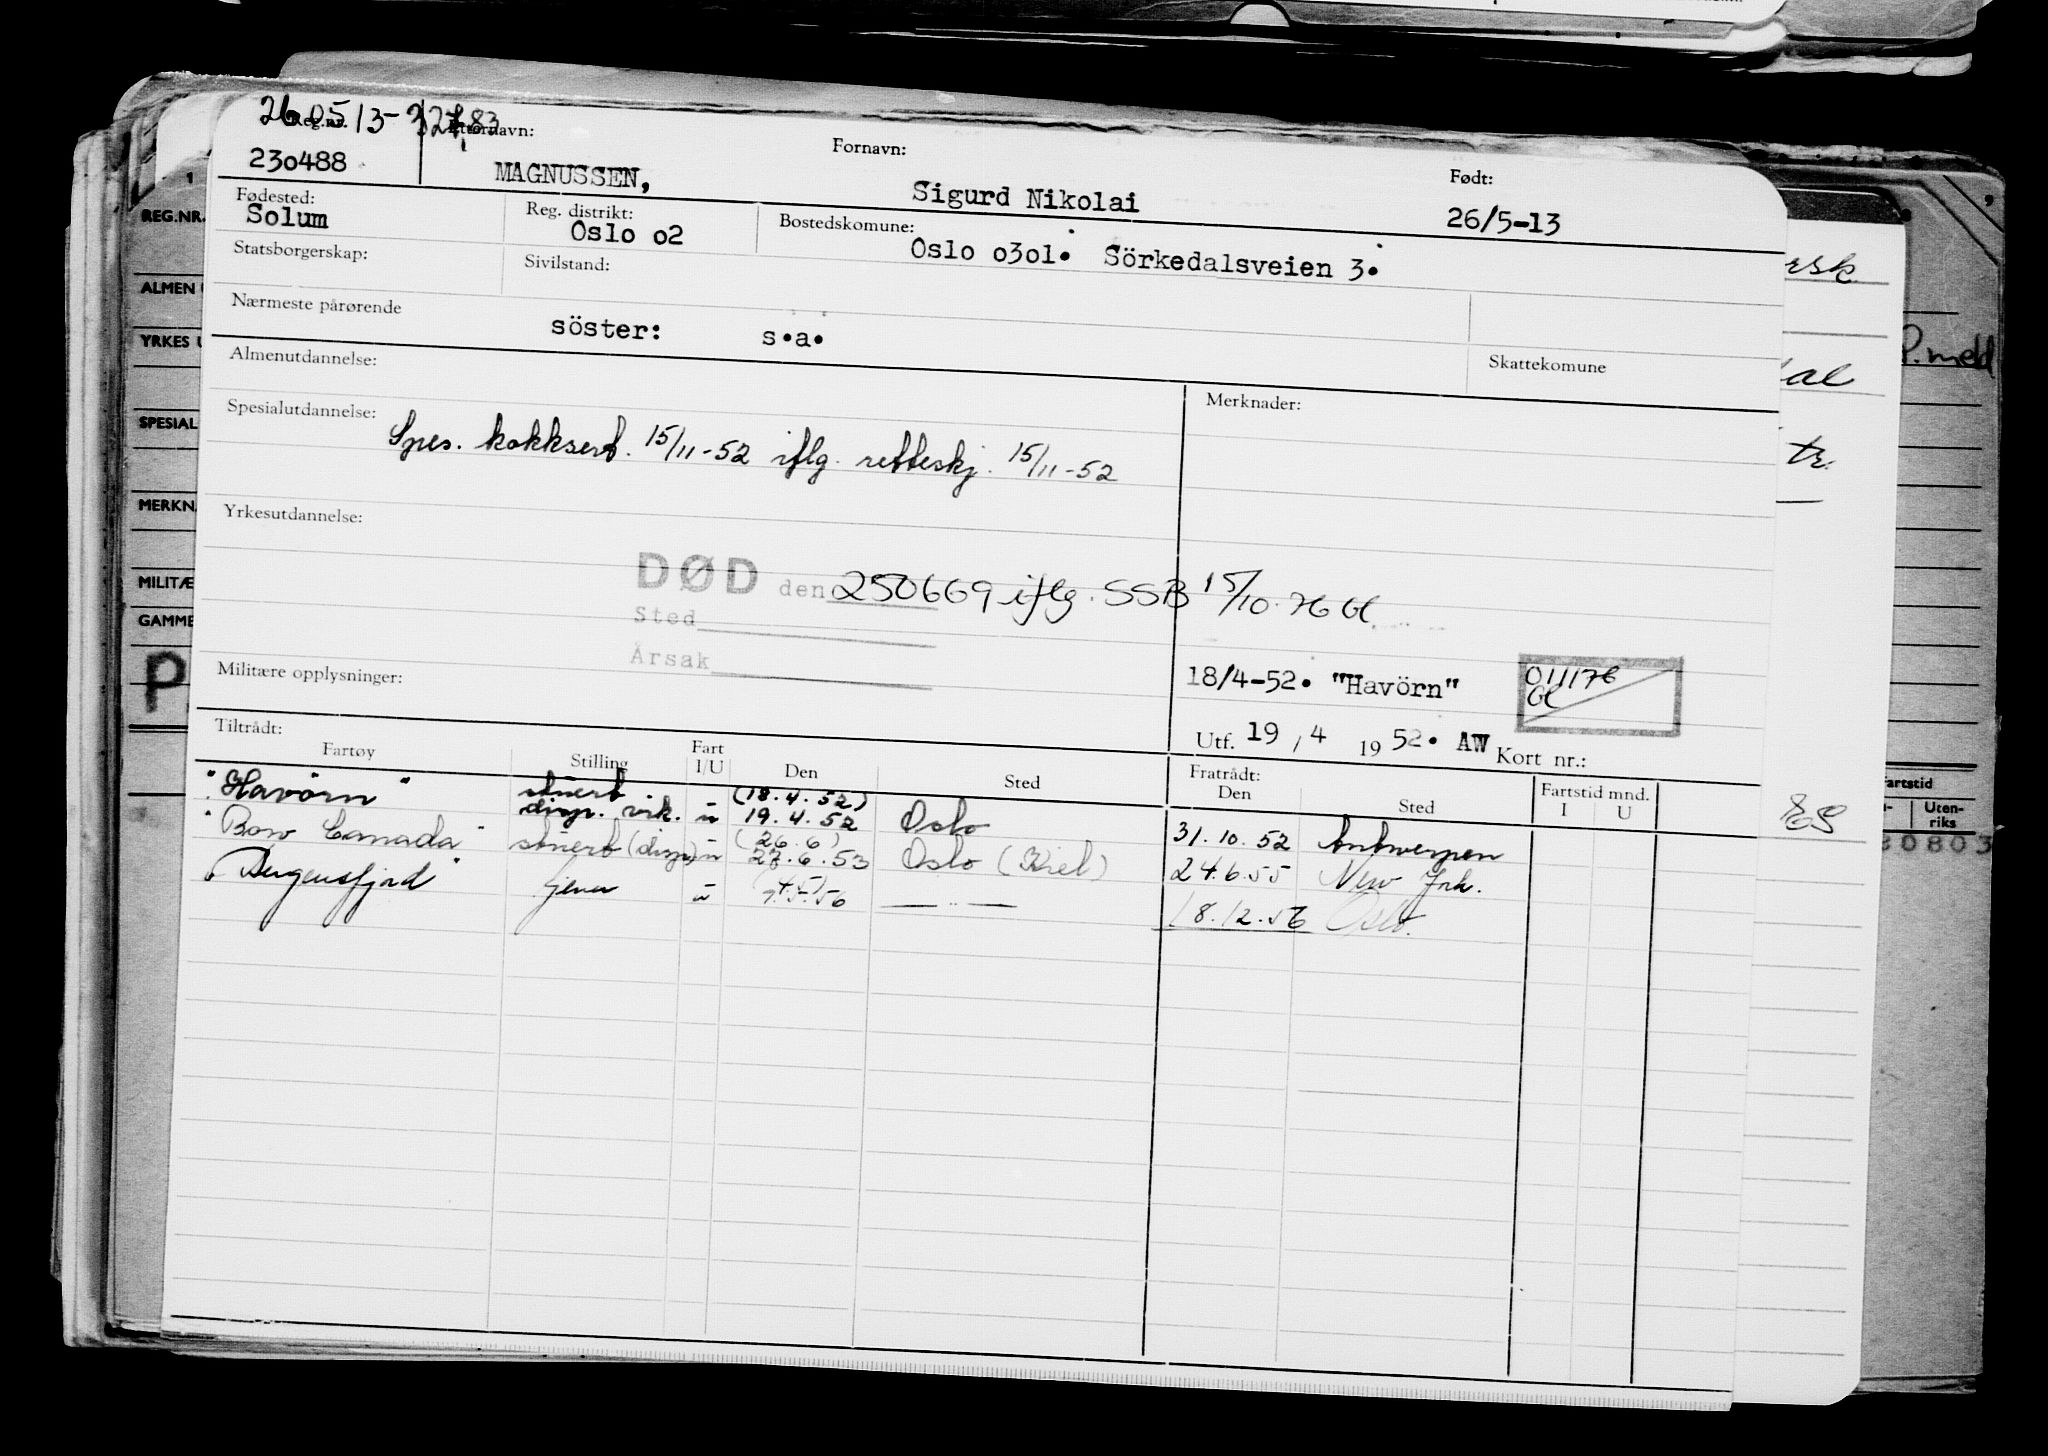 260513-
Reg.nr. Etternavn: Fornavn: Født:
230488 MAGNUSSEN, Sigurd Nikolai 26/5-13
Fødested: Reg. distrikt: Bostedskomune:
Solum Oslo o2 Oslo o3o1. Sörkedalsveien 3.
Statsborgerskap: Sivilstand:
Nærmeste pårørende
söster: s.a.
Almenutdannelse: Skattekomune
Spesialutdannelse: Merknader:
Spes. kokksert. 15/11-52 iflg. retteskj. 15/11-52
Yrkesutdannelse:
DØD den 250669 iflg. SSB 15/10.76 Gl
Sted
Årsak
Militære opplysninger:
18/4-52. "Havörn" 011176
Gl
Utf. 19 / 4 1952. AW Kort nr.:
Tiltrådt: Fratrådt:
Fartøy Stilling Fart I/U Den Sted Den Sted Fartstid mnd. I U
"Havörn" stuert disp. vik. u (18.4.52) 19.4.52 Oslo 31.10.52 Antwerpen
"Bow Canada" stuert (disp) u (26.6) 27.6.53 Oslo (Kiel) 24.6.55 New York.
"Bergensfjord" u 7.5.56 — " — 18.12.56 Oslo.
REG.NR.
ALMEN U
YRKES U
SPESIAL
MERKN.
MILITÆ
GAMME
P
rsk
P. meld
al
tr.
artstid
Uten-
riks
0803